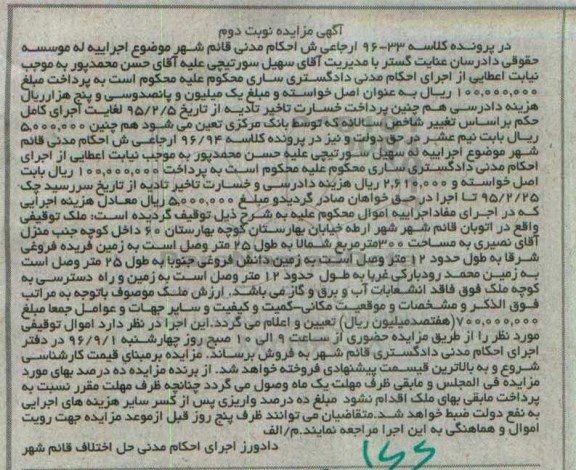 آگهی مزایده نوبت دوم
در پرونده کلاسه ۳۳-۹۶ ارجاعی ش احکام مدنی قائم شهر موضوع اجراییه له موسسه
حقوقی دادرسان عنایت گستر با مدیریت آقای سهیل سورتیچی علیه آقای حسن محمدپور به موجب
نیابت اعطایی از اجرای احکام مدنی دادگستری ساری محکوم علیه محکوم است به پرداخت مبلغ
۱۰۰,۰۰۰,۰۰۰ ریال به عنوان اصل خواسته و مبلغ یک میلیون و پانصدوسی و پنج هزارریال
هزینه دادرسی هم چنین پرداخت خسارت تاخیر تادیه از تاریخ ۹۵/۲/۵ لغایت اجرای کامل
حکم براساس تغییر شاخص سالانه که توسط بانک مرکزی تعین می شود هم چنین ۵,۰۰۰,۰۰۰
ریال بابت نیم عشر در حق دولت و نیز در پرونده کلاسه ۹۶/۹۴ ارجاعی ش احکام مدنی قائم
شهر موضوع اجراییه له سهیل سورتیچی علیه حسن محمدپور به موجب نیابت اعطایی از اجرای
احکام مدنی دادگستری ساری محکوم علیه محکوم است به پرداخت ۱۰۰,۰۰۰,۰۰۰ ریال بابت
اصل خواسته و ۲,۶۱۰,۰۰۰ ریال هزینه دادرسی و خسارت تاخیر تادیه از تاریخ سررسید چک
۹۵/۲/۲۵ تا اجرا در حق خواهان صادر گردیدو مبلغ ۵,۰۰۰,۰۰۰ ریال معادل هزینه اجرایی
که در اجرای مفاداجراییه اموال محکوم علیه به شرح ذیل توقیف گردیده است: ملک توقیفی
واقع در اتوبان قائم شهر شهر ارطه خیابان بهارستان کوچه بهارستان ۶۰ داخل کوچه جنب منزل
آقای نصیری به مساحت ۳۰۰مترمربع شمالا به طول ۲۵ متر وصل است به زمین فریده فروغی
شرقا به طول حدود ۱۲ متر وصل است به زمین دانش فروغی جنوبا به طول ۲۵ متر وصل است
به زمین محمد رودبارکی غربا به طول حدود ۱۲ متر وصل است به زمین و راه دسترسی به
کوچه ملک فوق فاقد انشعابات آب و برق و گاز می باشد. ارزش ملک موصوف باتوجه به مراتب
فوق الذکر و مشخصات و موقعیت مکانی-کمیت و کیفیت و سایر جهات و عوامل جمعا مبلغ
۷۰۰,۰۰۰,۰۰۰(هفتصدمیلیون ریال) تعیین و اعلام می گردد. این اجرا در نظر دارد اموال توقیفی
مورد نظر را از طریق مزایده حضوری از ساعت ۹ الی ۱۰ صبح روز چهارشنبه ۹۶/۹/۱ در دفتر
اجرای احکام مدنی دادگستری قائم شهر به فروش برساند. مزایده برمبنای قیمت کارشناسی
شروع و به بالاترین قیسمت پیشنهادی فروخته خواهد شد. از برنده مزایده ده درصد بهای مورد
مزایده فی المجلس و مابقی ظرف مهلت یک ماه وصول می گردد چنانچه ظرف مهلت مقرر نسبت به
پرداخت مابقی بهای ملک اقدام نشود مبلغ ده درصد واریزی پس از کسر سایر هزینه های اجرایی
به نفع دولت ضبط خواهد شد. متقاضیان می توانند ظرف پنج روز قبل ازموعد مزایده جهت رویت
اموال و هماهنگی به این اجرا مراجعه نمایند.م/الف
دادورز اجرای احکام مدنی حل اختلاف قائم شهر